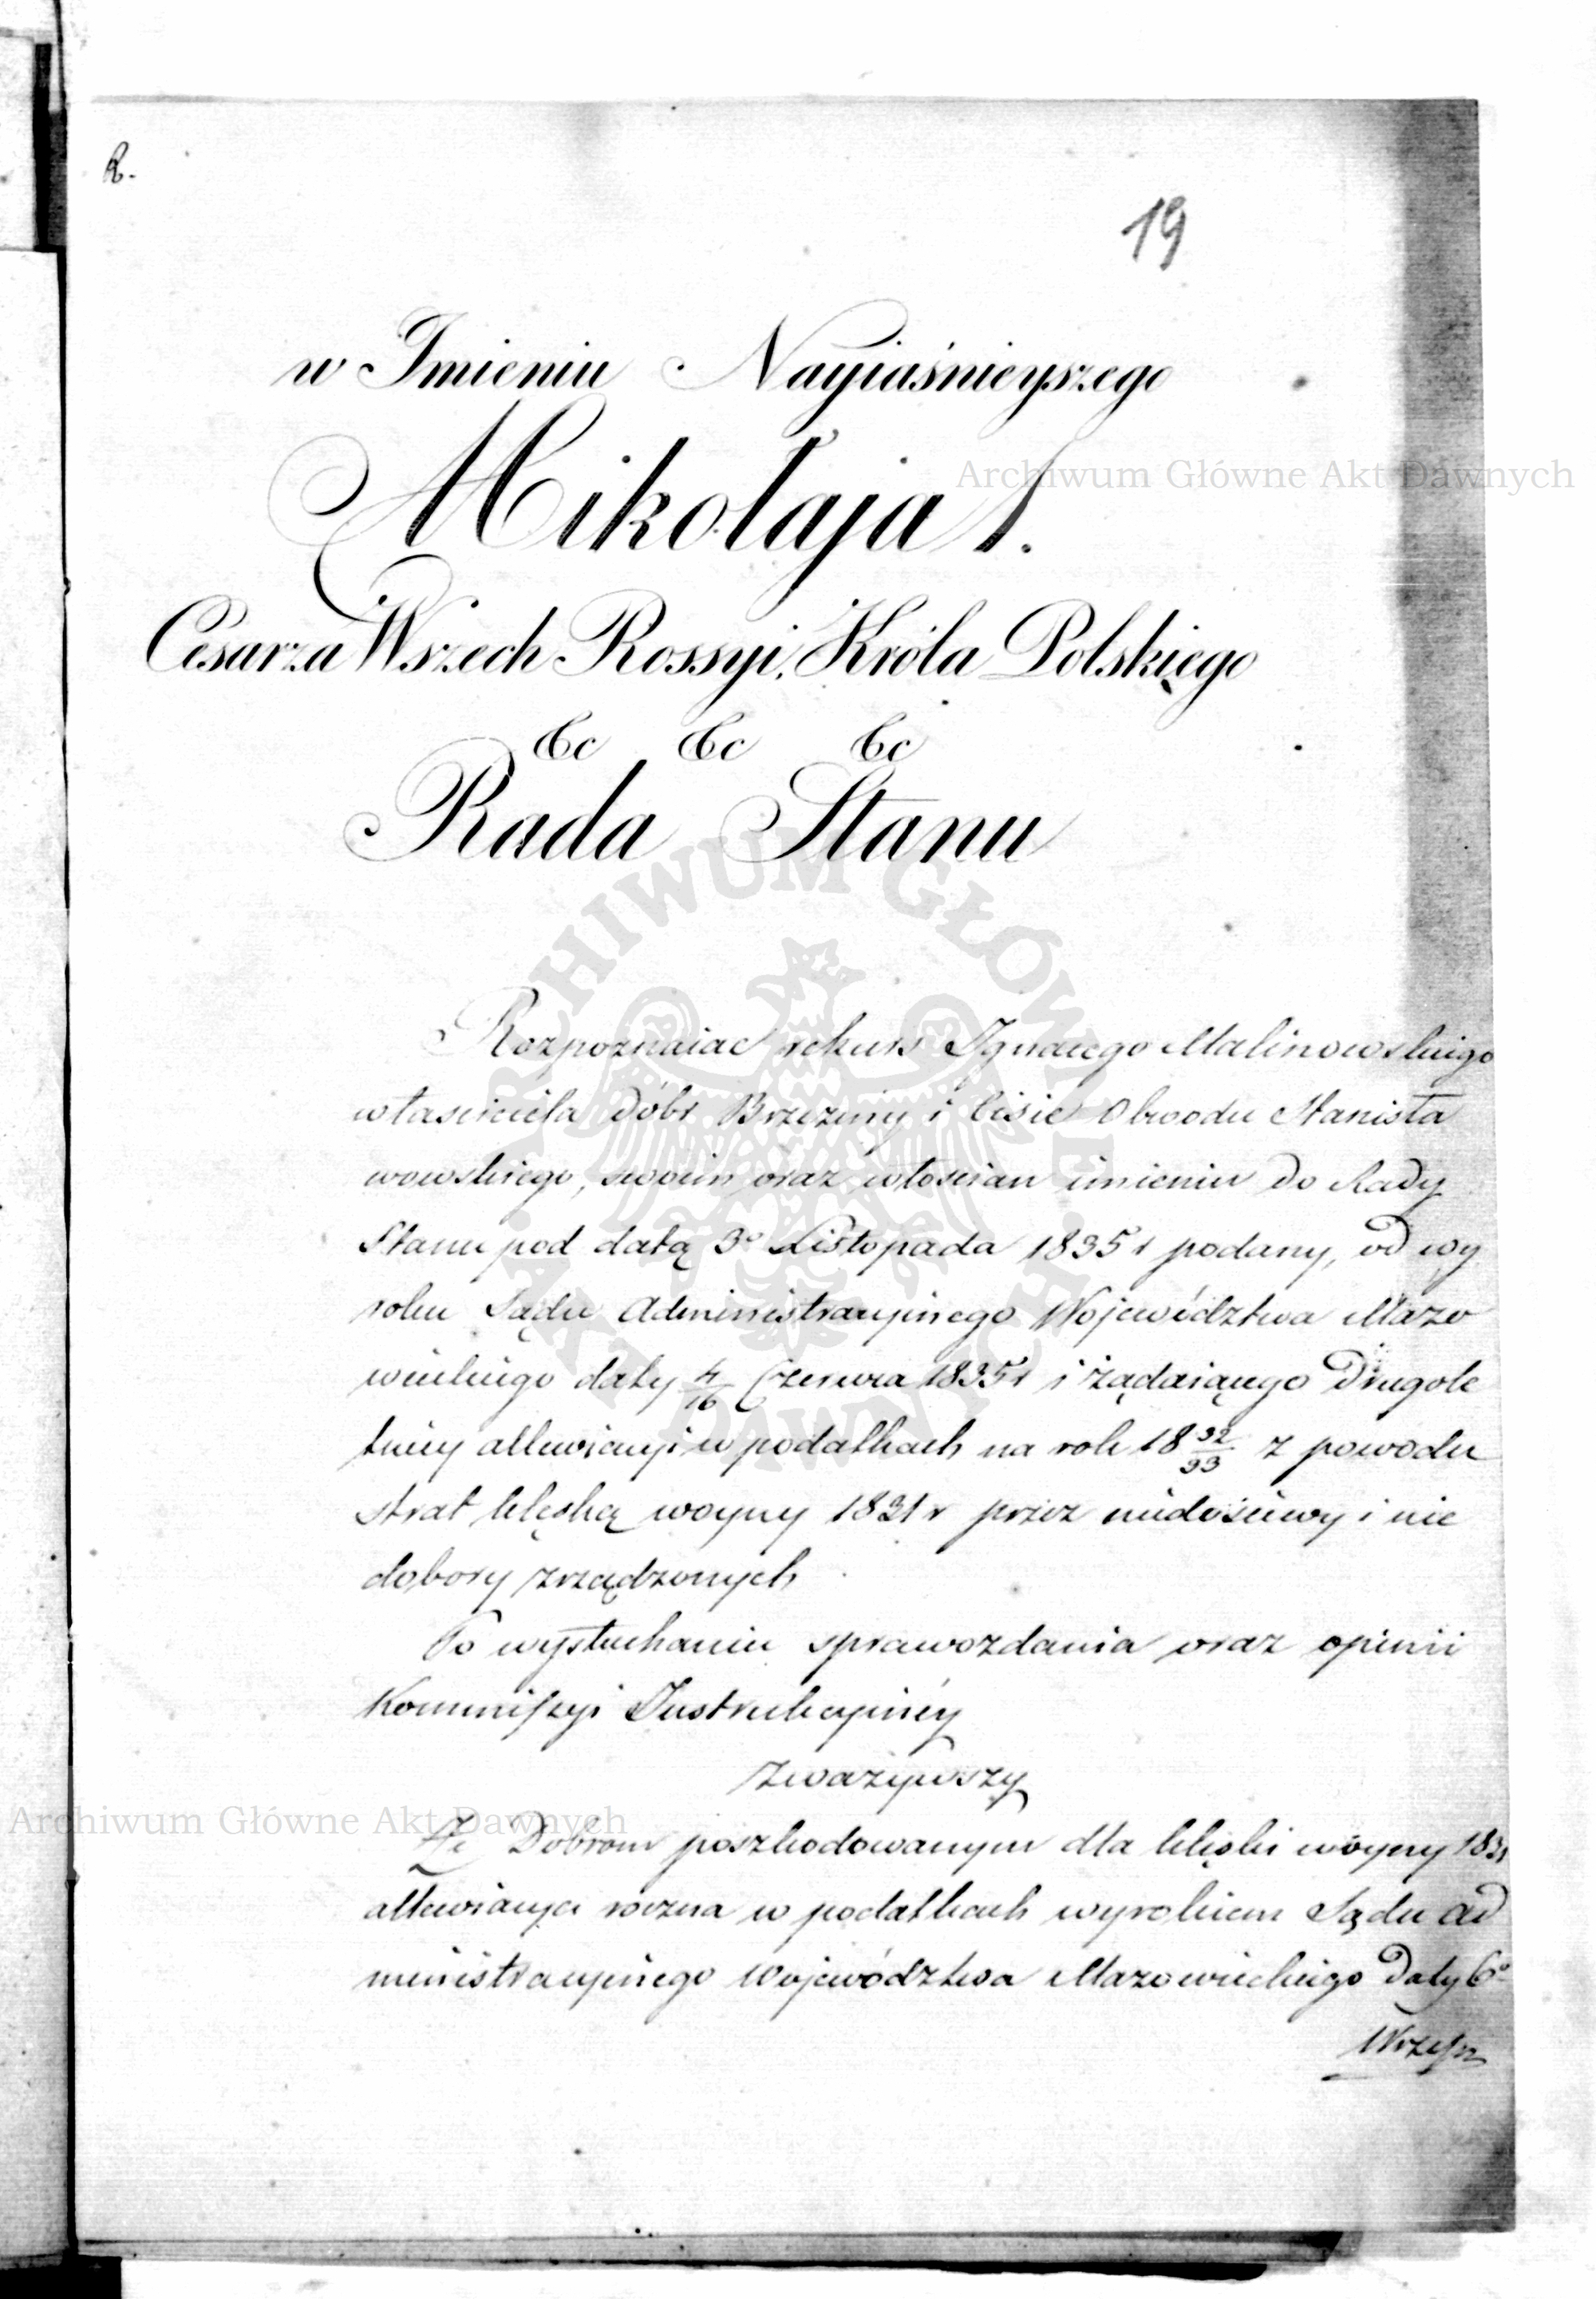 R.
19
w Imieniu Nayiaśnieyszego
Mikołaja I.
Cesarza Wszech Rossyi, Króla Polskiego
&c &c &c
Rada Stanu
Rozpoznaiac rekurs Ignacego Malinowskiego
własciciela Dóbr Brzeziny i Cisie Obwodu Stanisła
wowskiego, swoim oraz włoscian imieniu do Rady
Stanu pod datą 3º Listopada 1835 r podany, od wy
roku Sądu Administracyinego Województwa Mazo
wieckiego daty 4/16 Czerwca 1835 r i żądaiącego Drugole
tniey allewiacyi w podatkach na rok 18 32/33 z powodu
strat klęską woyny 1831 r przez niedosiewy i nie
dobory zrządzonych
Po wysłuchaniu sprawozdania oraz opinii
Kommissyi Instrukcyinéy
Zważywszy
Że Dobrom poszkodowanym dla klęski woyny 1831
allewiacya roczna w podatkach wyrokiem Sądu Ad
ministracyinego Województwa Mazowieckiego Daty 6º
Wrześn
Archiwum Główne Akt Dawnych
Archiwum Główne Akt Dawnych
ARCHIWUM GŁÓWNE AKT DAWNYCH